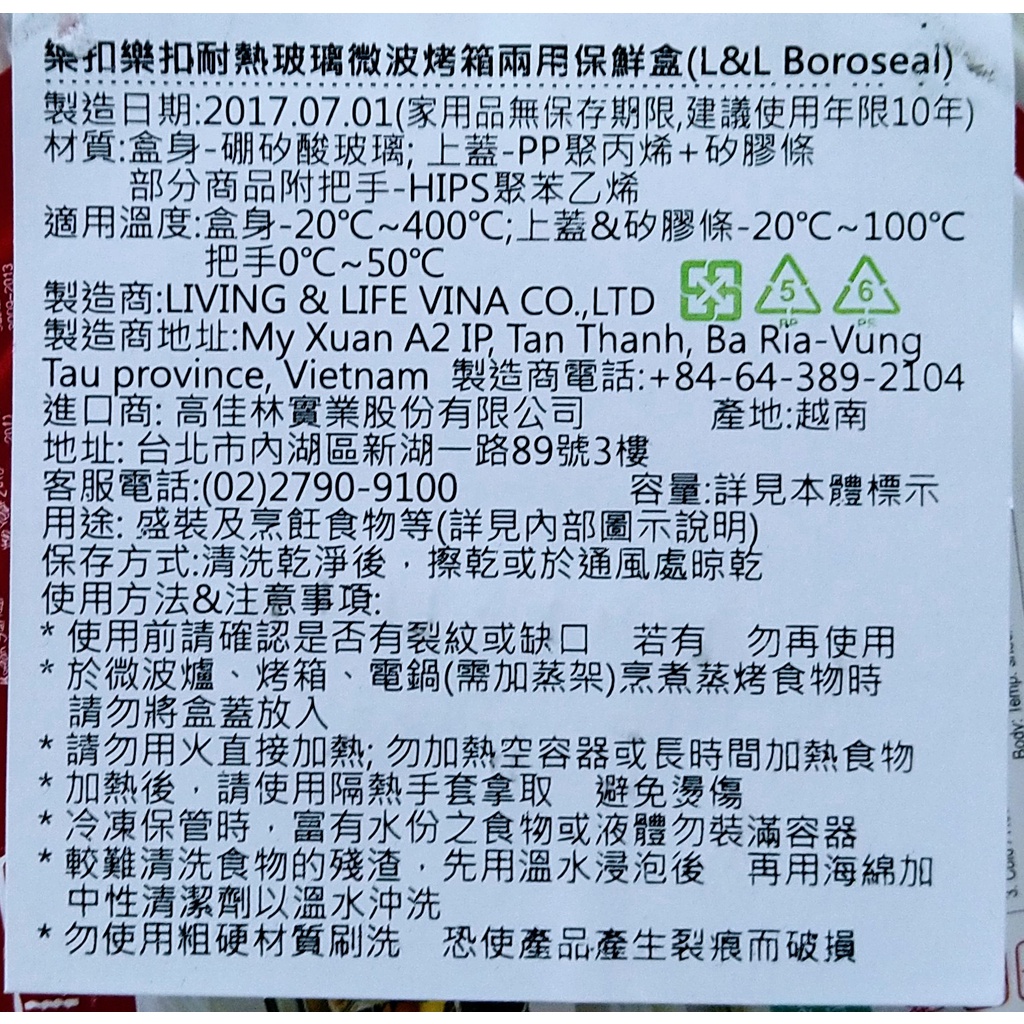 樂扣樂扣耐熱玻璃微波烤箱兩用保鮮盒(L&L Boroseal)
製造日期:2017.07.01(家用品無保存期限,建議使用年限10年)
材質:盒身-硼矽酸玻璃; 上蓋-PP聚丙烯+矽膠條
部分商品附把手-HIPS聚苯乙烯
適用溫度:盒身-20℃~400℃;上蓋&矽膠條-20℃~100℃
把手0℃~50℃
5 6
PP PS
製造商:LIVING & LIFE VINA CO.,LTD
製造商地址:My Xuan A2 IP, Tan Thanh, Ba Ria-Vung
Tau province, Vietnam 製造商電話:+84-64-389-2104
進口商: 高佳林實業股份有限公司 產地:越南
地址: 台北市內湖區新湖一路89號3樓
客服電話:(02)2790-9100 容量:詳見本體標示
用途: 盛裝及烹飪食物等(詳見內部圖示說明)
保存方式:清洗乾淨後,擦乾或於通風處晾乾
使用方法&注意事項:
* 使用前請確認是否有裂紋或缺口 若有 勿再使用
* 於微波爐、烤箱、電鍋(需加蒸架)烹煮蒸烤食物時
請勿將盒蓋放入
* 請勿用火直接加熱; 勿加熱空容器或長時間加熱食物
* 加熱後,請使用隔熱手套拿取 避免燙傷
* 冷凍保管時,富有水份之食物或液體勿裝滿容器
* 較難清洗食物的殘渣,先用溫水浸泡後 再用海綿加
中性清潔劑以溫水沖洗
* 勿使用粗硬材質刷洗 恐使產品產生裂痕而破損